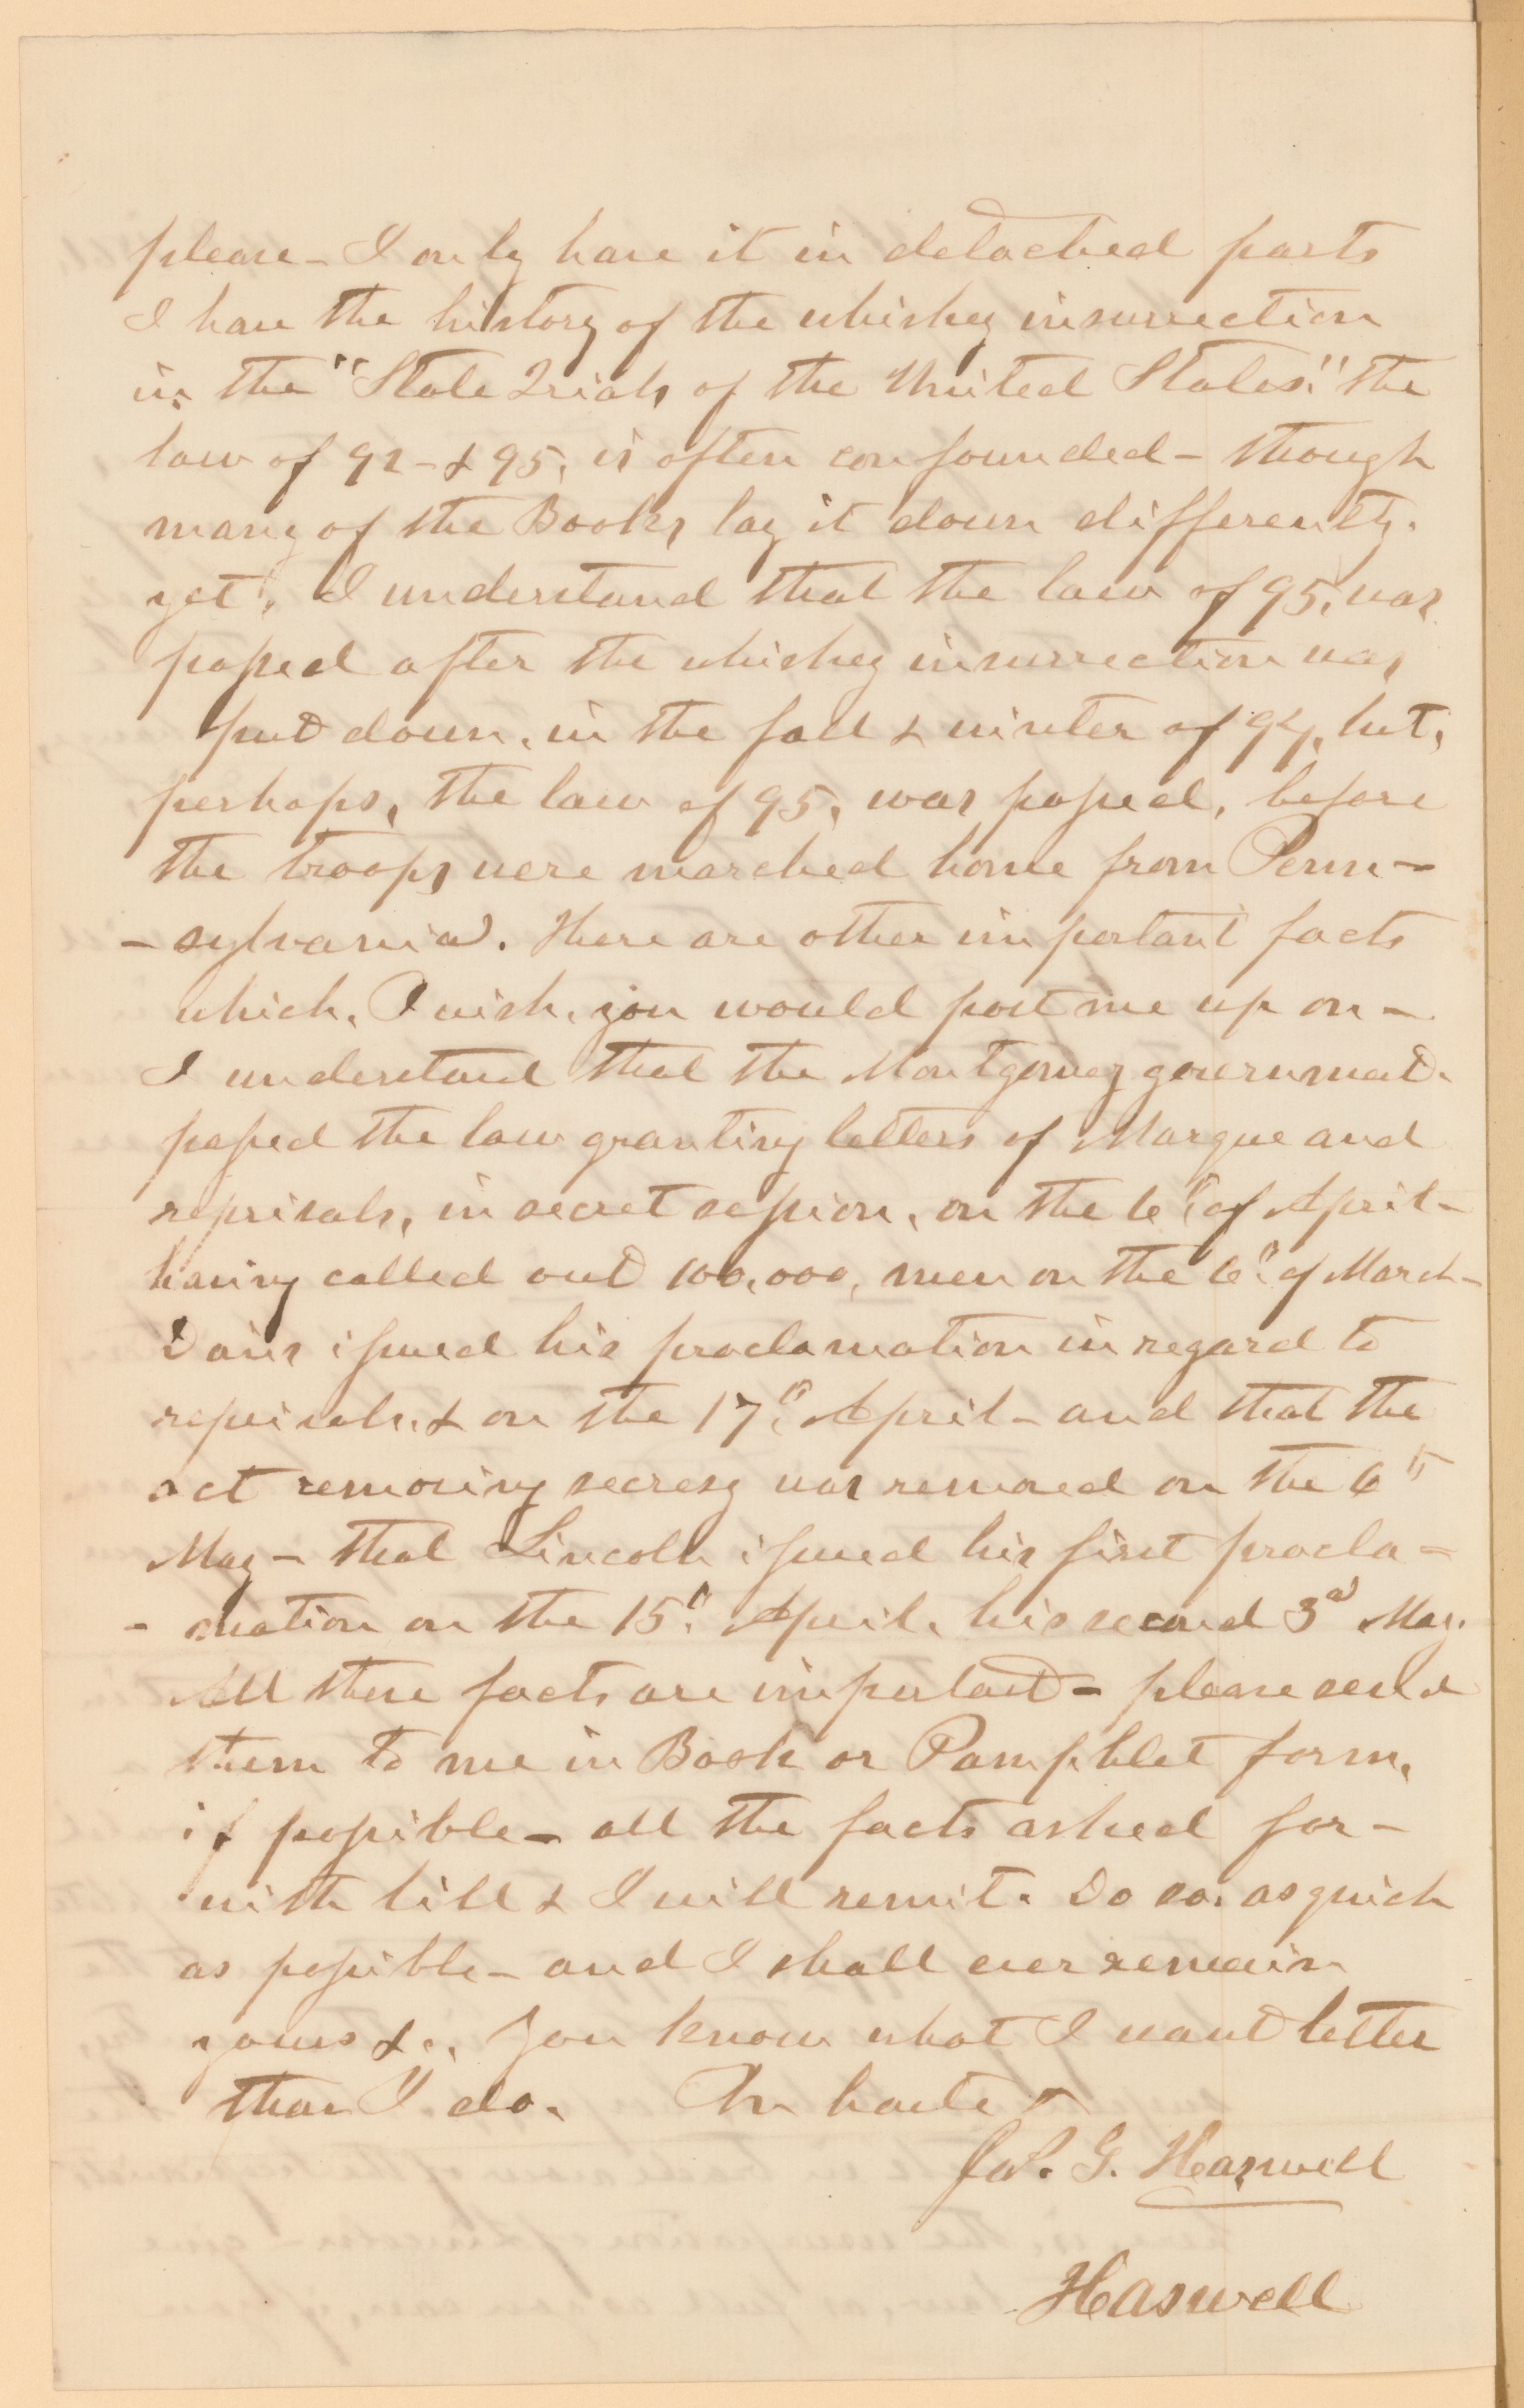 please - I only have it in detached parts
I have the history of the whiskey insurrection
in the "State Trials of the United States." the
law of 92 - & 95, is often confounded - though
many of the Books lay it down differently.
yet, I understand that the law of 95, was
passed after the whiskey insurrection was
put down, in the fall & winter of 94, but,
perhaps, the law of 95, was passed, before
the troops were marched home from Penn-
-sylvania. There are other important facts
which, I wish, you would post me up on -
I understand that the Montgomery government.
passed the law granting letters of Marque and
reprisals, in secret session, on the 6th of April -
having called out 100,000, men on the 6th of March -
Davis issued his proclamation in regard to
repeisals, & on the 17th April - and that the
act removing secresy was removed on the 6th
May - that Lincoln issued his first procla-
-mation on the 15th April, his second 3d May.
All these facts are important - please send
them to me in Book or Pamphlet form,
if possible - all the facts asked for -
with bill & I will remit. Do so, as quick
as possible - and I shall ever remain
yours &c., You know what I want better
than I do. In haste
Jas. G. Haswell
Haswell